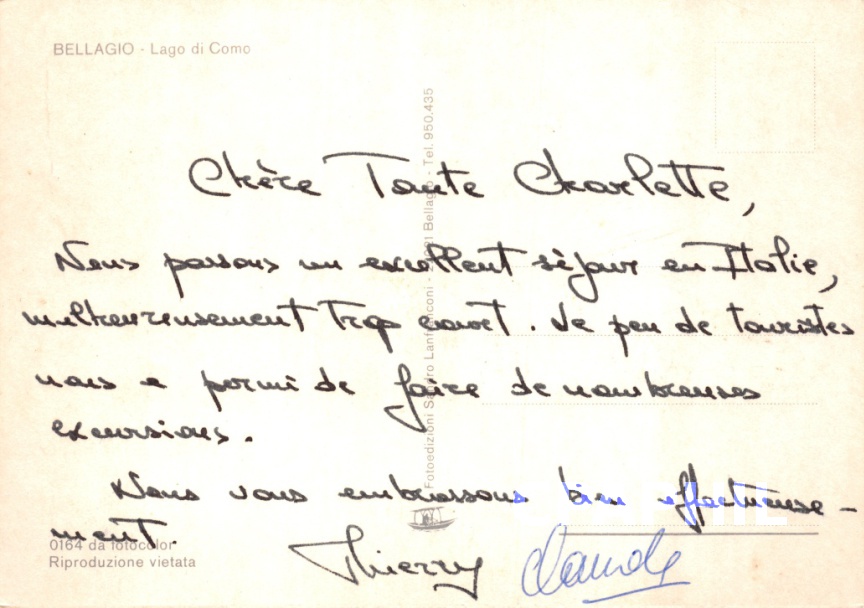 BELLAGIO - Lago di Como
Chère Tante Charlette,
Nous passons un excellent séjour en Italie,
malheureusement trop court. Le peu de touristes
nous a permi de faire de nombreuses
excursions.
Nous vous embrassons bien affectueuse-
ment.
Thierry Claude
0164 da fotocolor
Riproduzione vietata
Fotoedizioni Sandro Lanfranconi - Bellagio - Tel. 950.435